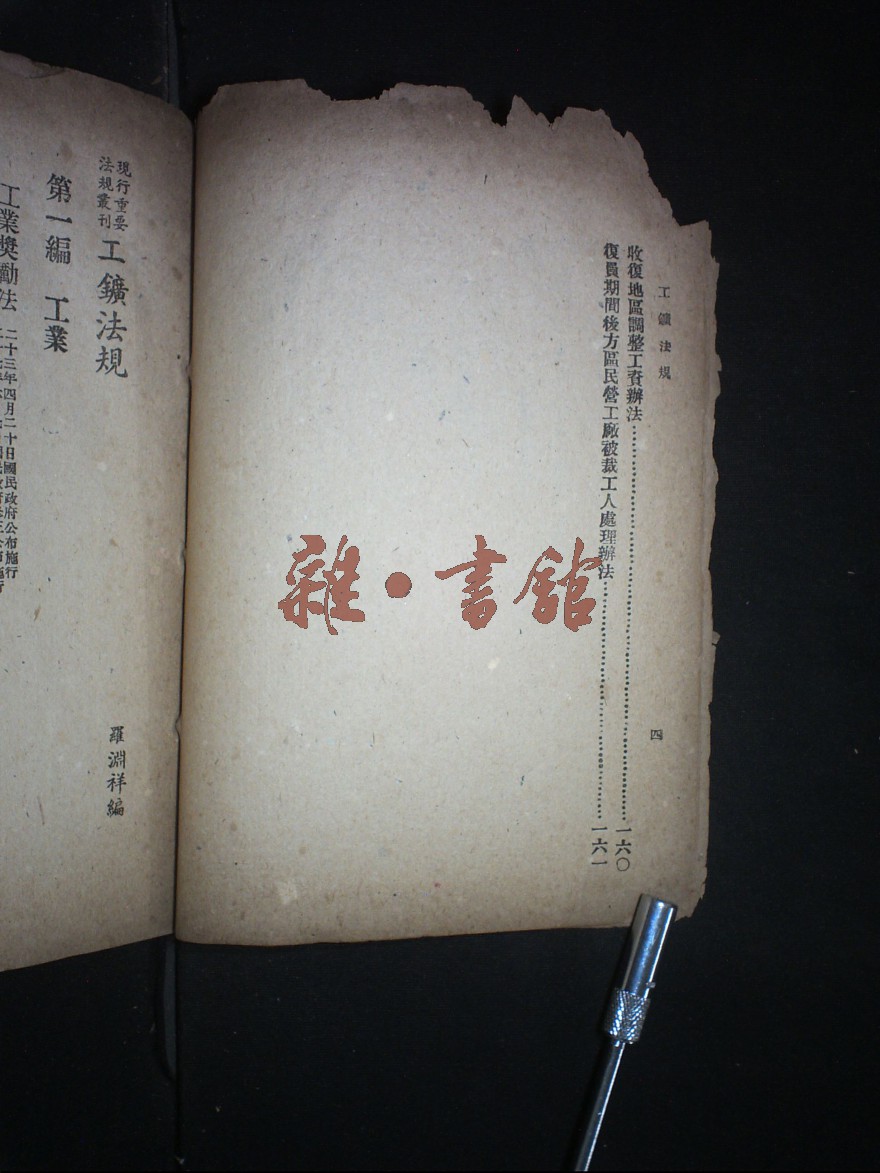 工鑛法規
收復地區調整工資辦法……一六〇
復員期間後方區民營工廠被裁工人處理辦法……一六一
四
雜·書館
現行重要
法規叢刊
工鑛法規
羅淵祥編
第一編 工業
工業獎勵法
二十三年四月二十日國民政府公布施行